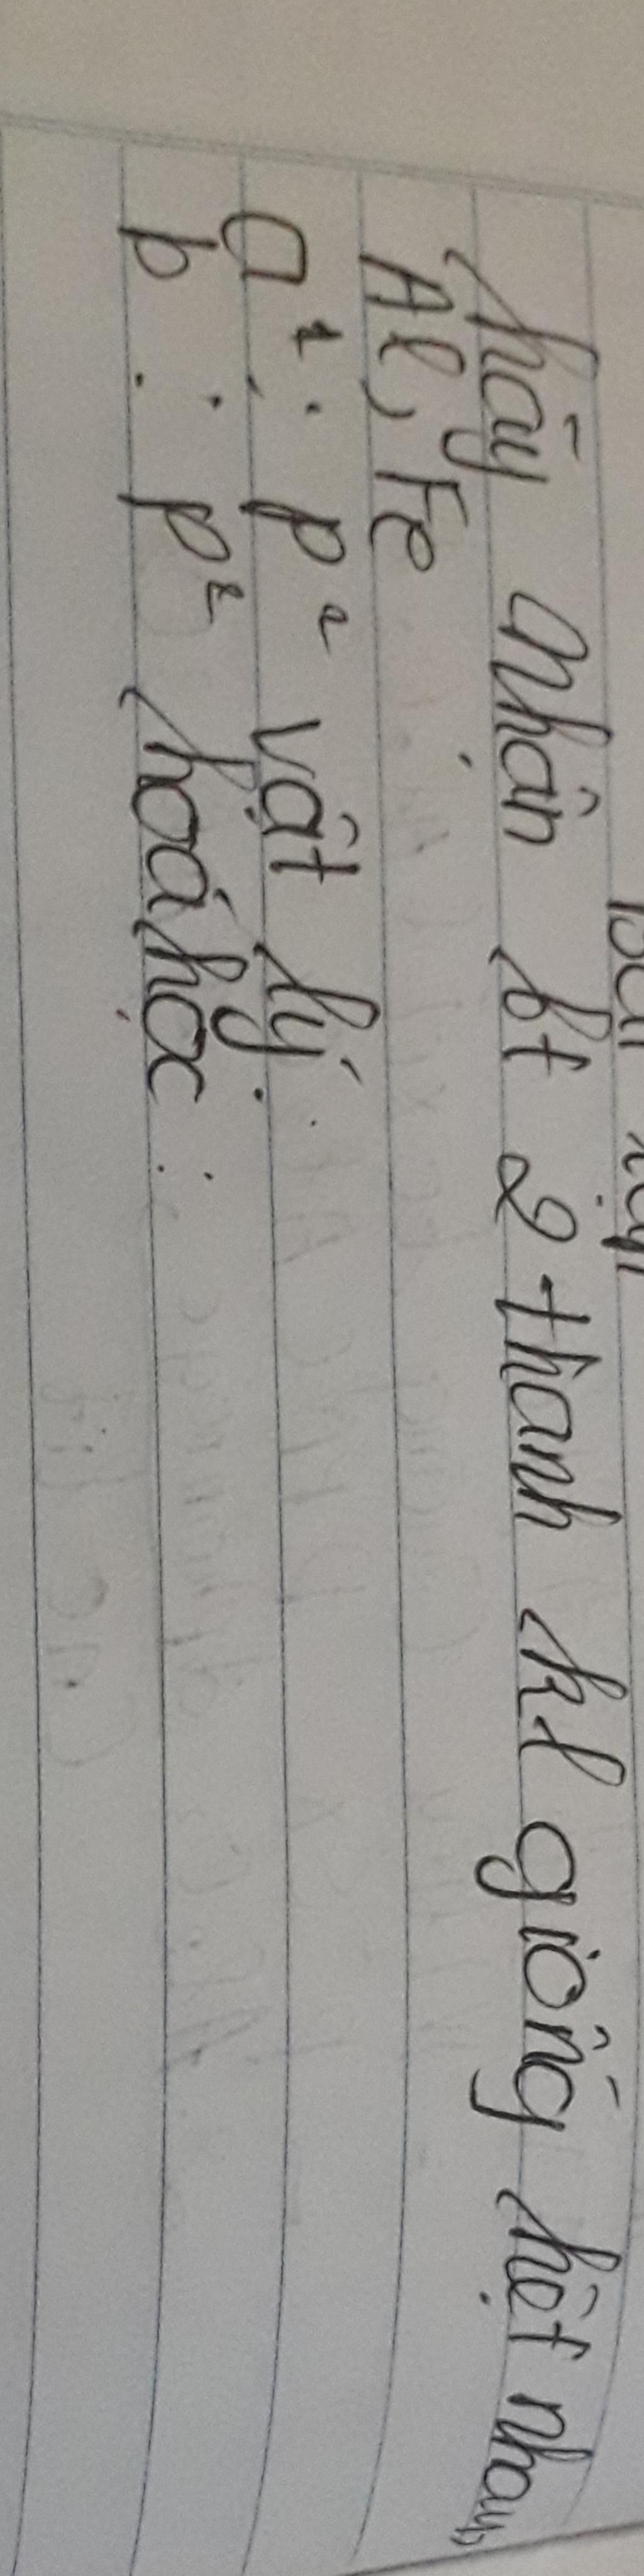 hãy nhận bt 2 thanh kl giống hệt nhau
Al, Fe
a : p² vật lý.
b : p² hoá học :